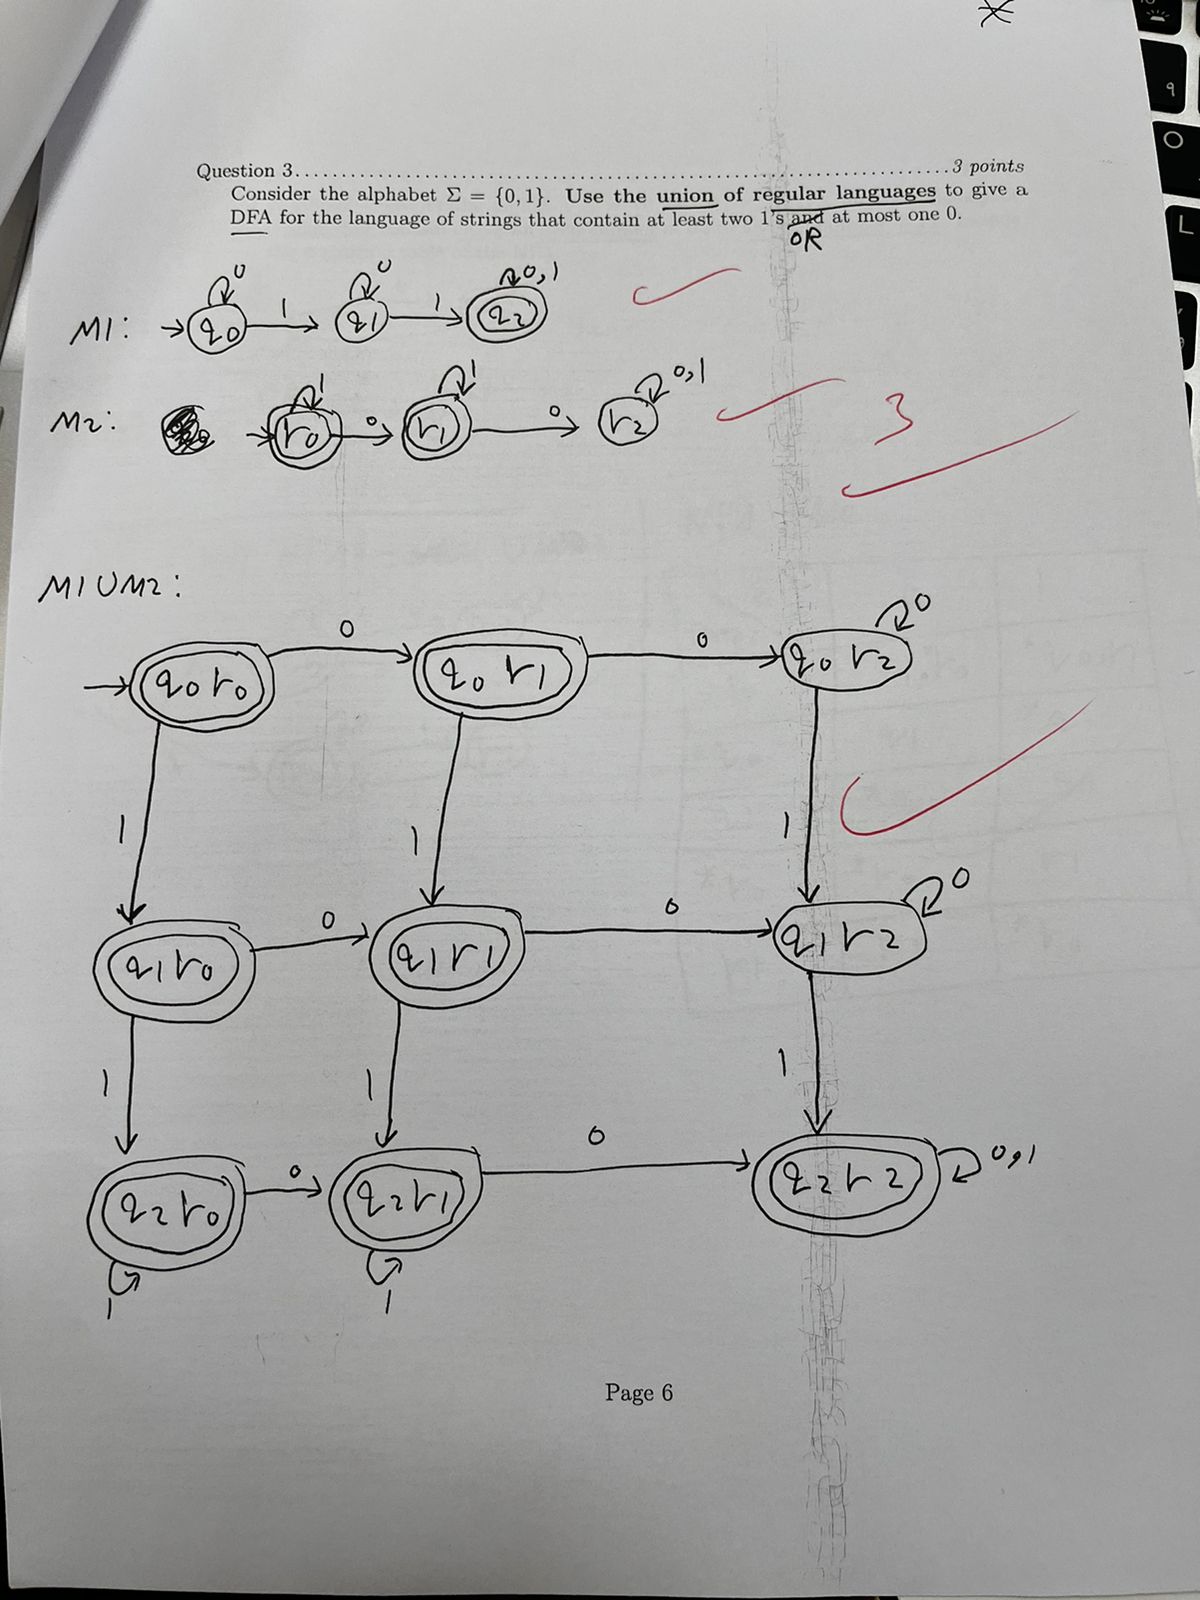 Question 3..........3 points
Consider the alphabet Σ = {0, 1}. Use the union of regular languages to give a
DFA for the language of strings that contain at least two 1's and at most one 0.
OR
0 0 0,1
M1: q0 1 q1 1 q2
1 1 0,1
M2: r0 0 r1 0 r2
3
M1UM2:
0 0 0
q0r0 q0r1 q0r2
1 1 1
0 0 0
q1r0 q1r1 q1r2
1 1 1
0 0 0,1
q2r0 q2r1 q2r2
1 1
Page 6
9
O
L